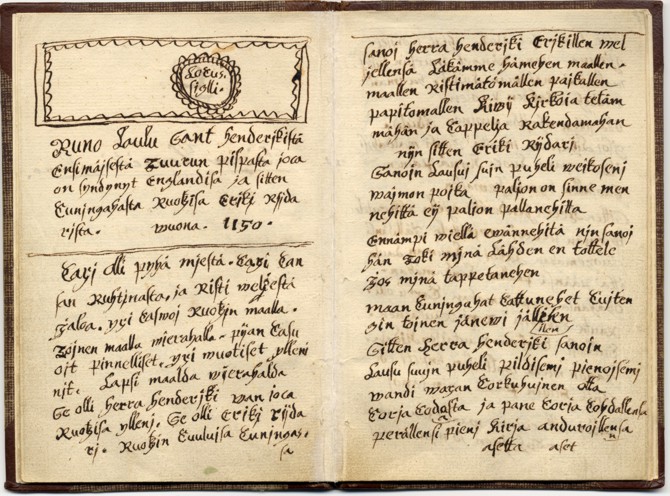 Locus.
Sigilli.
Runo Laulu Sant henderjkistä
Ensimäjsestä Tuurun pispasta joca
on syndynyt Englandisa ja sitten
Cuningahasta Ruotzisa Erikj Rijda
rista. wuona. 1150.
Caxi olli pyhä mjestä. Caxi Can
san Ruhtjnasta, ja Risti weljestä
Jalca. yxi caswoj Ruotzin maalla.
Tojnen maalla wierahalla. pijan Casu
ojt pinnelliset. yxi wuotiset ylleni
njt. Lapsi maalda wierahalda
Se olli herra henderjki wan joca
Ruotzisa ylleni. Se olli Erikj rijda
rj. Ruotzin Cuuluisa Cuningas.
sa
sanoj herra henderjki Erjkillen wel
jellensä Läkämme hämehen maallen.
maallen Ristimätömällen pajkallen
papitomallen Kiwij Kjrkoia teläm
mähän ja Cappelja Rakendamahan
nijn sitten Eriki Rijdarj
Sanoin Lausuj sujn puheli weikosenj
wajmon pojka paljon on sinne men
nehittä eij palion pallanehitta
Ennämpi wiellä ewännehitä nijn sanoj
hän Toki mjnä Lähden en tottele
Jos mjnä tappetanehen
maan Cuninguhat Cattunehet Cuiten
gin tojnen jänewi jällkhen
llen
Sitten herra henderjki sanoin
Lausu suujn puheli pildisemj pienojsemj
wandi waxan Corkuhujnen ota
Corja Codasta ja pane Corja Cohdallens
perällensi pienj Kirja andurojllensa
asetta aset